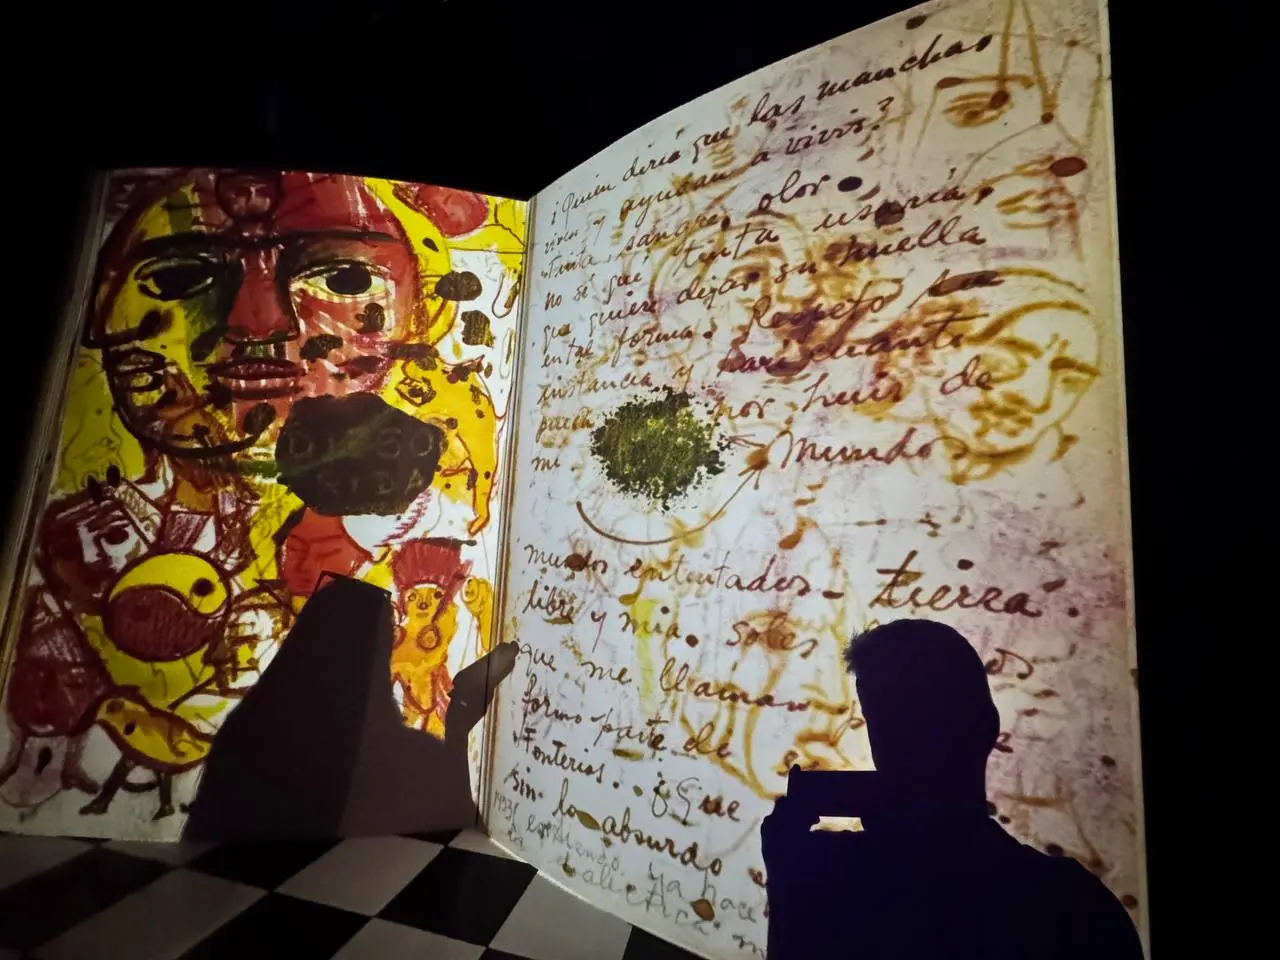 DIEGO
¿Quien diría que las manchas
viven y ayudan a vivir?
Tinta, sangre, olor.
no sé qué tinta usaría,
que quiere dejar su huella
en tal forma. Respeto su
instancia y haré cuanto
pueda por huir de
mi Mundo
mundos entintados - tierra
libre y mia. Soles
que me llaman
formo parte de
Tonterias. ¿Que
sin lo absurdo
1953
ya hace
dialectica